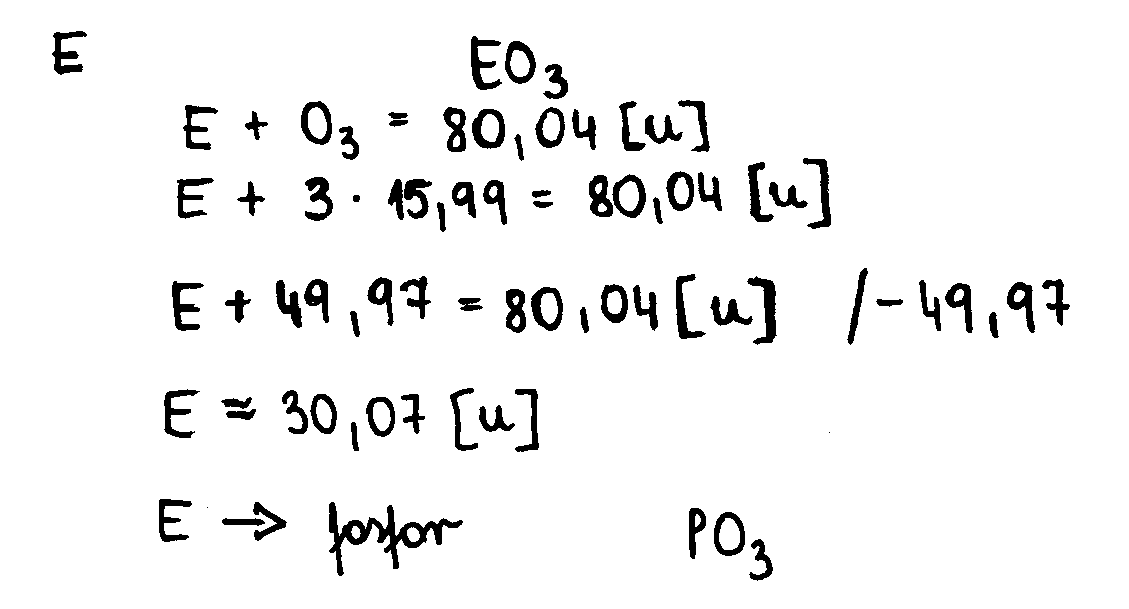 E EO₃
E + O₃ = 80,04 [u]
E + 3 · 15,99 = 80,04 [u]
E + 49,97 = 80,04 [u] /- 49,97
E ≈ 30,07 [u]
E → fosfor PO₃